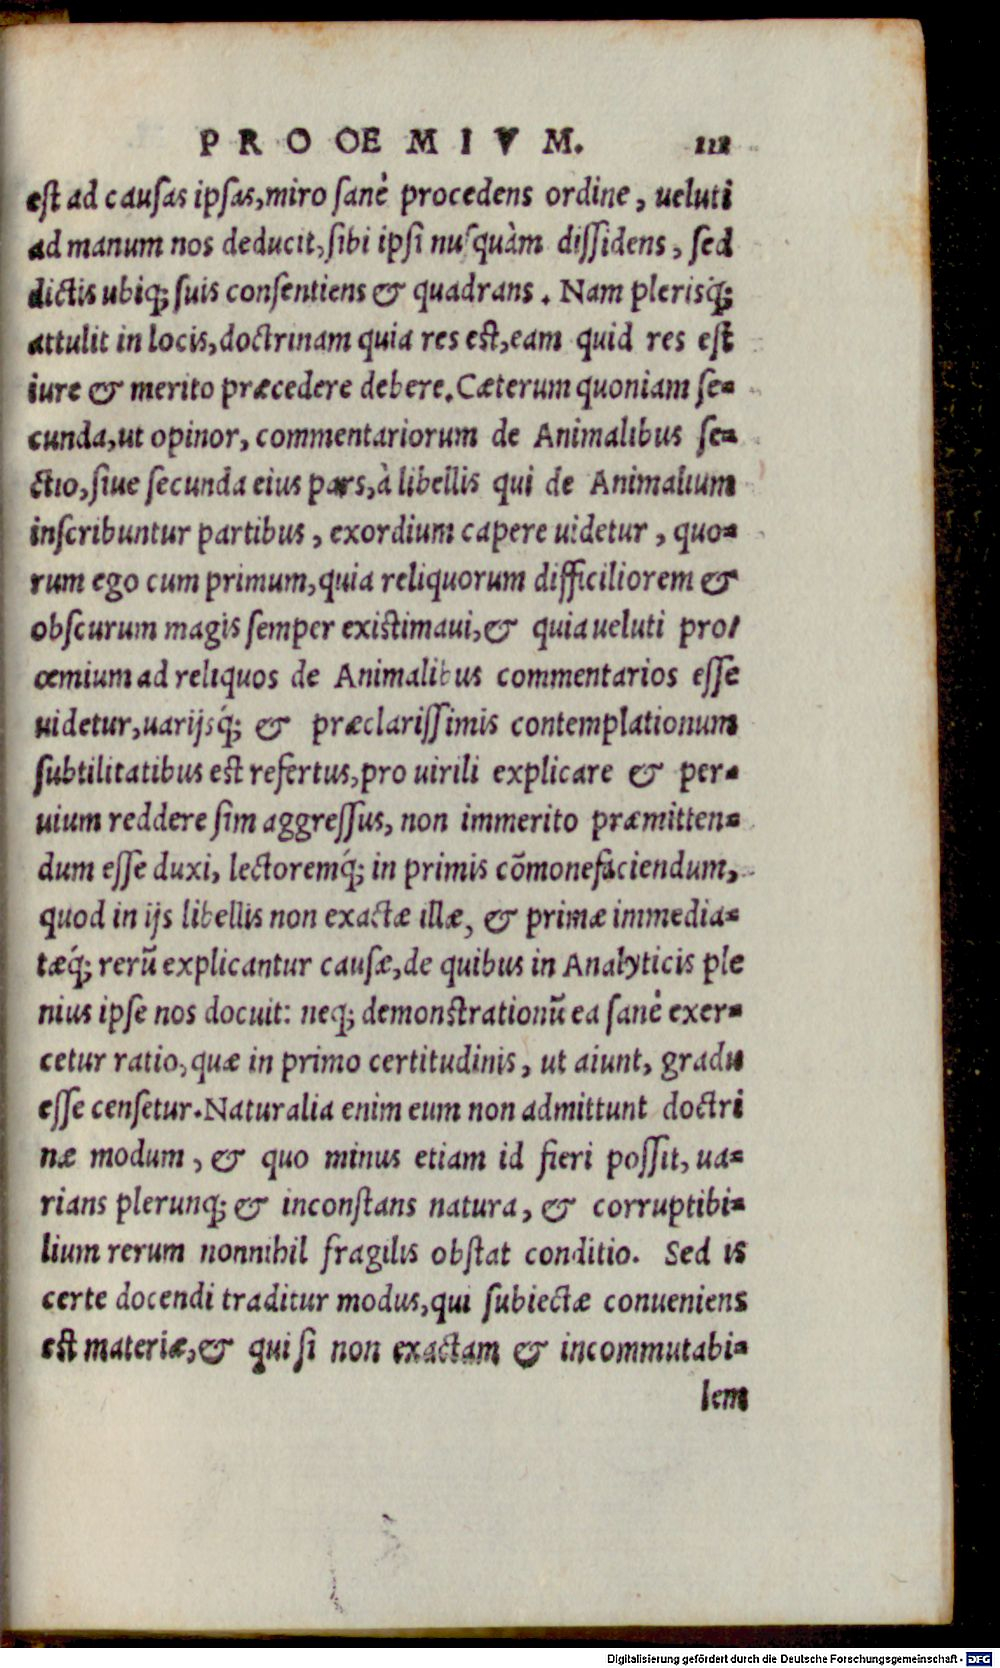 PROOEMIVM. 111
est ad causas ipsas, miro sanè procedens ordine, ueluti
ad manum nos deducit, sibi ipsi nusquàm dissidens, sed
dictis ubiq; suis consentiens & quadrans. Nam plerisq́;
attulit in locis, doctrinam quia res est, eam quid res est
iure & merito præcedere debere. Cæterum quoniam se-
cunda, ut opinor, commentariorum de Animalibus se-
ctio, siue secunda eius pars, à libellis qui de Animalium
inscribuntur partibus, exordium capere uidetur, quo-
rum ego cum primum, quia reliquorum difficiliorem &
obscurum magis semper existimaui, & quia ueluti pro-
œmium ad reliquos de Animalibus commentarios esse
uidetur, uarijsq́; & præclarissimis contemplationum
subtilitatibus est refertus, pro uirili explicare & per-
uium reddere sim aggressus, non immerito præmitten-
dum esse duxi, lectoremq́; in primis cõmonefaciendum,
quod in ijs libellis non exactæ illæ, & primæ immedia-
tæq́; rerũ explicantur causæ, de quibus in Analyticis ple
nius ipse nos docuit: neq; demonstrationũ ea sanè exer-
cetur ratio, quæ in primo certitudinis, ut aiunt, gradu
esse censetur. Naturalia enim eum non admittunt doctri
næ modum, & quo minus etiam id fieri possit, ua-
rians plerunq; & inconstans natura, & corruptibi-
lium rerum nonnihil fragilis obstat conditio. Sed is
certe docendi traditur modus, qui subiectæ conueniens
est materiæ, & qui si non exactam & incommutabi-
lem
Digitalisierung gefördert durch die Deutsche Forschungsgemeinschaft - DFG